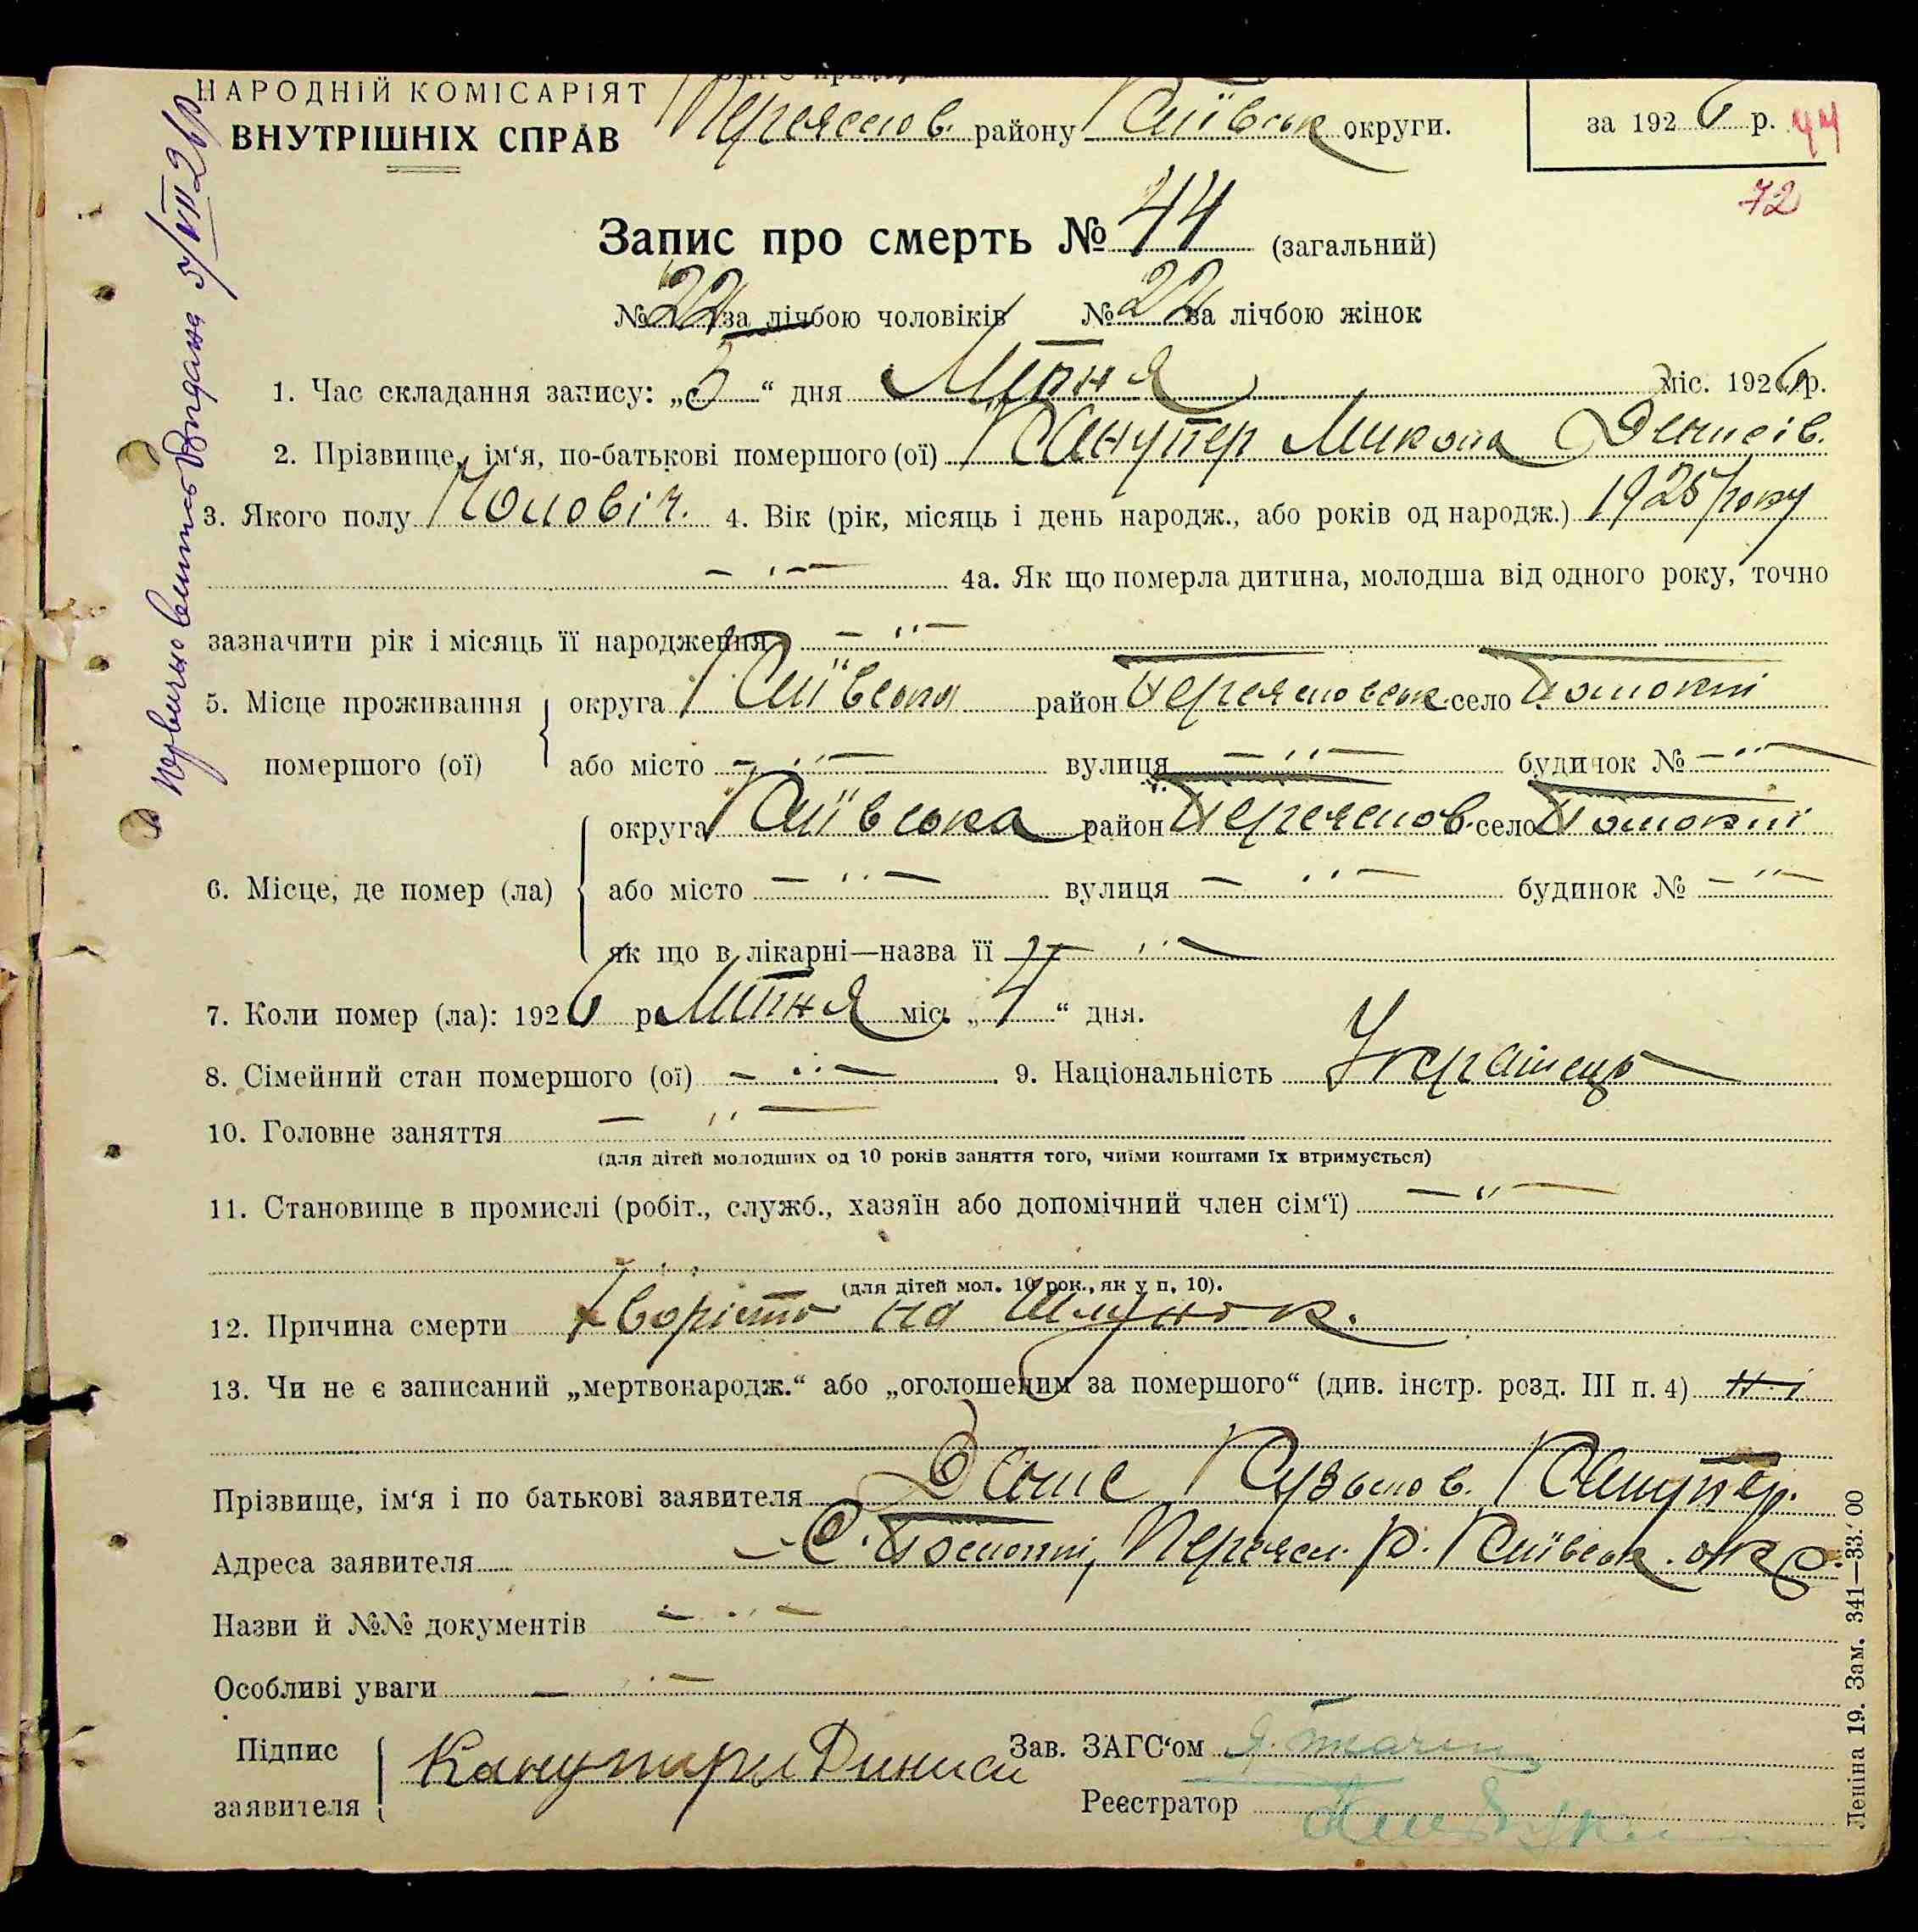 НАРОДНІЙ КОМІСАРІЯТ
ВНУТРІШНІХ СПРАВ
Переяслов. району Київськ округи.
за 1926 р. 44
72
Запис про смерть № 44 (загальний)
№ 22 за лічбою чоловіків № 22 за лічбою жінок
1. Час складання запису: „5“ дня Липня міс. 1926 р.
2. Прізвище, ім‘я, по-батькові помершого (ої) Микола Денисів.
3. Якого полу Чоловіч. 4. Вік (рік, місяць і день народж., або років од народж.) 1925 року
— ·· — 4а. Як що померла дитина, молодша від одного року, точно
зазначити рік і місяць її народження — ·· —
5. Місце проживання помершого (ої) округа Київська район Переясловськ село
або місто — ·· — вулиця — ·· — будинок № — ·· —
6. Місце, де помер (ла) округа Київська район Переяслов. село
або місто — ·· — вулиця — ·· — будинок № — ·· —
як що в лікарні—назва її — ·· —
7. Коли помер (ла): 1926 р Липня міс. „4“ дня.
8. Сімейний стан помершого (ої) — ·· — 9. Національність Українець
10. Головне заняття — ·· —
(для дітей молодших од 10 років заняття того, чиїми коштами їх втримується)
11. Становище в промислі (робіт., служб., хазяїн або допомічний член сім‘ї) — ·· —
(для дітей мол. 10 рок., як у п. 10).
12. Причина смерти Хворість на Шлунок.
13. Чи не є записаний „мертвонародж.“ або „оголошеним за помершого“ (див. інстр. розд. III п. 4) Ні
Прізвище, ім‘я і по батькові заявителя Кузьмов.
Адреса заявителя С. Переясл. р. Київськ. окр.
Назви й №№ документів — ·· —
Особливі уваги — ·· —
Підпис заявителя Дениси
Зав. ЗАГС‘ом
Реєстратор
Леніна 19. Зам. 341—33.‘00